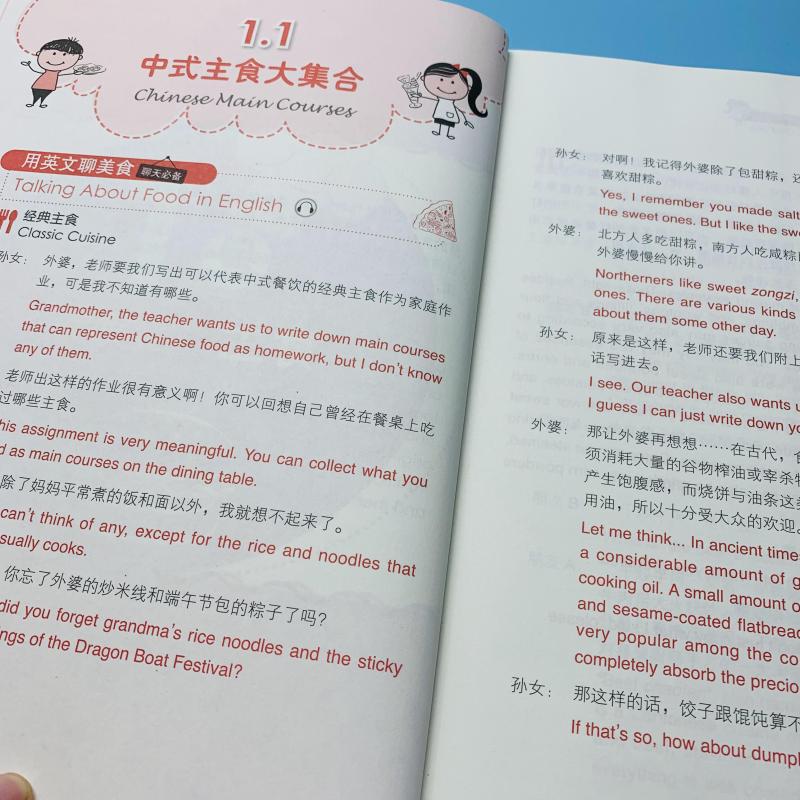 1.1
中式主食大集合
Chinese Main Courses
用英文聊美食 聊天必备
Talking About Food in English
经典主食
Classic Cuisine
孙女： 外婆，老师要我们写出可以代表中式餐饮的经典主食作为家庭作
业，可是我不知道有哪些。
Grandmother, the teacher wants us to write down main courses
that can represent Chinese food as homework, but I don't know
any of them.
老师出这样的作业很有意义啊！你可以回想自己曾经在餐桌上吃
过哪些主食。
his assignment is very meaningful. You can collect what you
d as main courses on the dining table.
除了妈妈平常煮的饭和面以外，我就想不起来了。
can't think of any, except for the rice and noodles that
sually cooks.
你忘了外婆的炒米线和端午节包的粽子了吗？
did you forget grandma's rice noodles and the sticky
ings of the Dragon Boat Festival?
孙女： 对啊！我记得外婆除了包甜粽，还
喜欢甜粽。
Yes, I remember you made salt
the sweet ones. But I like the swe
外婆： 北方人多吃甜粽，南方人吃咸粽
外婆慢慢给你讲。
Northerners like sweet zongzi,
ones. There are various kinds
about them some other day.
孙女： 原来是这样，老师还要我们附上
话写进去。
I see. Our teacher also wants u
I guess I can just write down yo
外婆： 那让外婆再想想……在古代，食
须消耗大量的谷物榨油或宰杀牲
产生饱腹感，而烧饼与油条这类
用油，所以十分受大众的欢迎。
Let me think... In ancient time
a considerable amount of g
cooking oil. A small amount o
and sesame-coated flatbread
very popular among the co
completely absorb the precio
孙女： 那这样的话，饺子跟馄饨算不
If that's so, how about dumpl